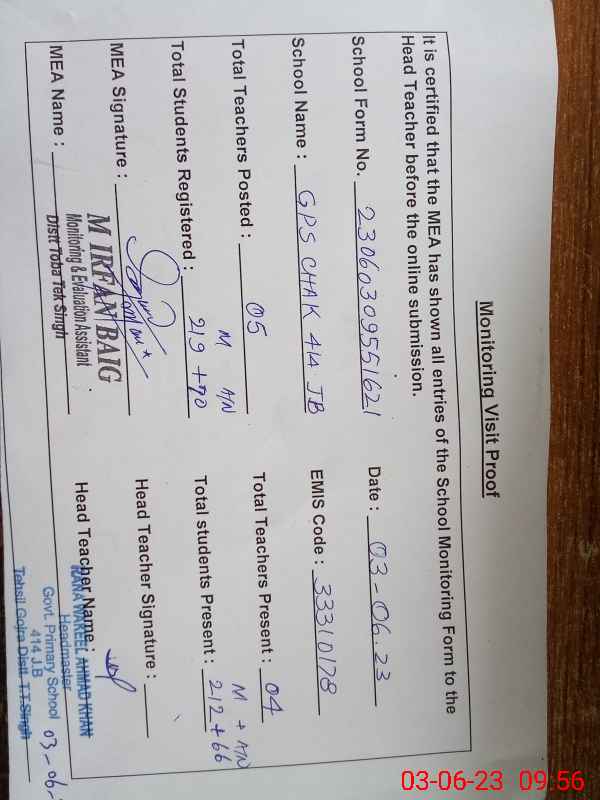 Monitoring Visit Proof
It is certified that the MEA has shown all entries of the School Monitoring Form to the
Head Teacher before the online submission.
School Form No. 23060309551621 Date : 03-06.23
School Name : GPS CHAK 414 JB EMIS Code : 33310178
Total Teachers Posted : 05 Total Teachers Present : 04
M A/N M + A/N
Total Students Registered : 219 +70 Total students Present : 212+66
MEA Signature : Head Teacher Signature :
M IRFAN BAIG
Monitoring & Evaluation Assistant
Distt Toba Tek Singh
MEA Name : Head Teacher Name :
RANA WAKEEL AHMAD KHAN
Headmaster
Govt. Primary School
414 J.B
Tehsil Gojra Distt. T.T.Singh
03-06-
03-06-23 09:56